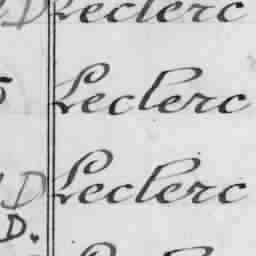 D Leclerc
5 Leclerc
D Leclerc
D.